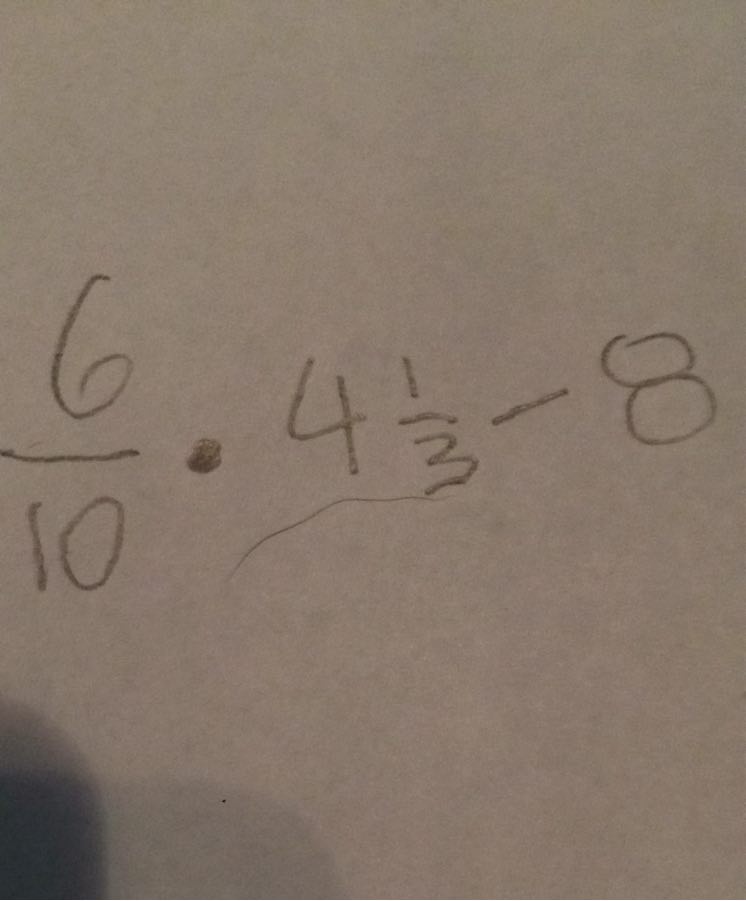 6/10 • 4 1/3 - 8